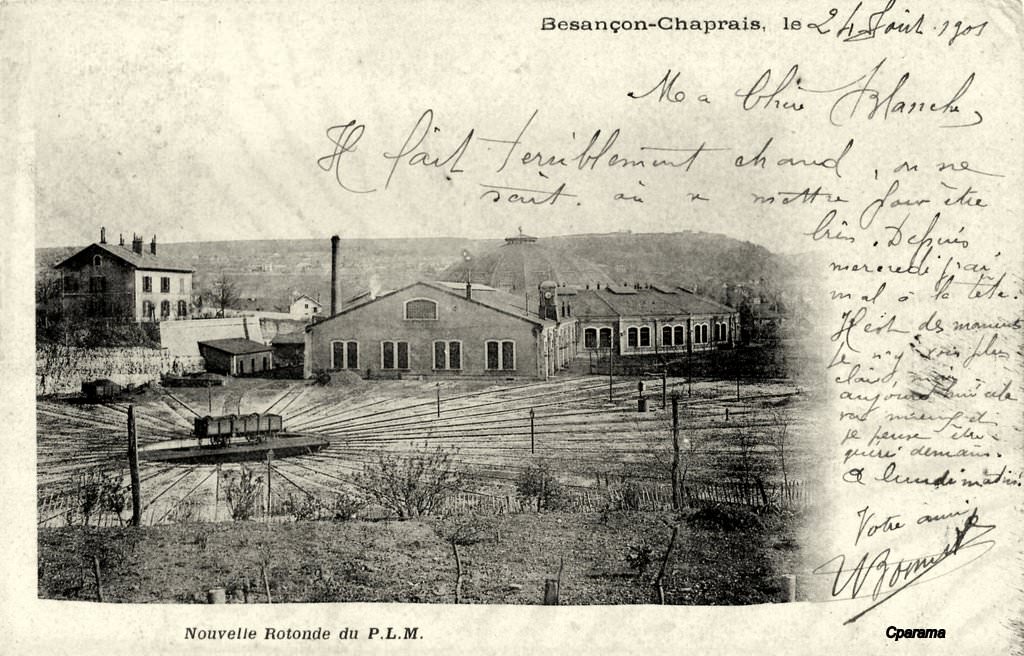 Besançon-Chaprais, le 24 Août 1901
Ma Chère Blanche,
Il fait terriblement chaud, on ne
sait où se mettre pour être
bien. Depuis
mercredi j'ai
mal à la tête.
Il est des moments
je n'y vois plus
clair,
aujourd'hui cela
va mieux et
je pense être
guéri demain.
A lundi matin.
Votre ami
Nouvelle Rotonde du P.L.M.
Cparama